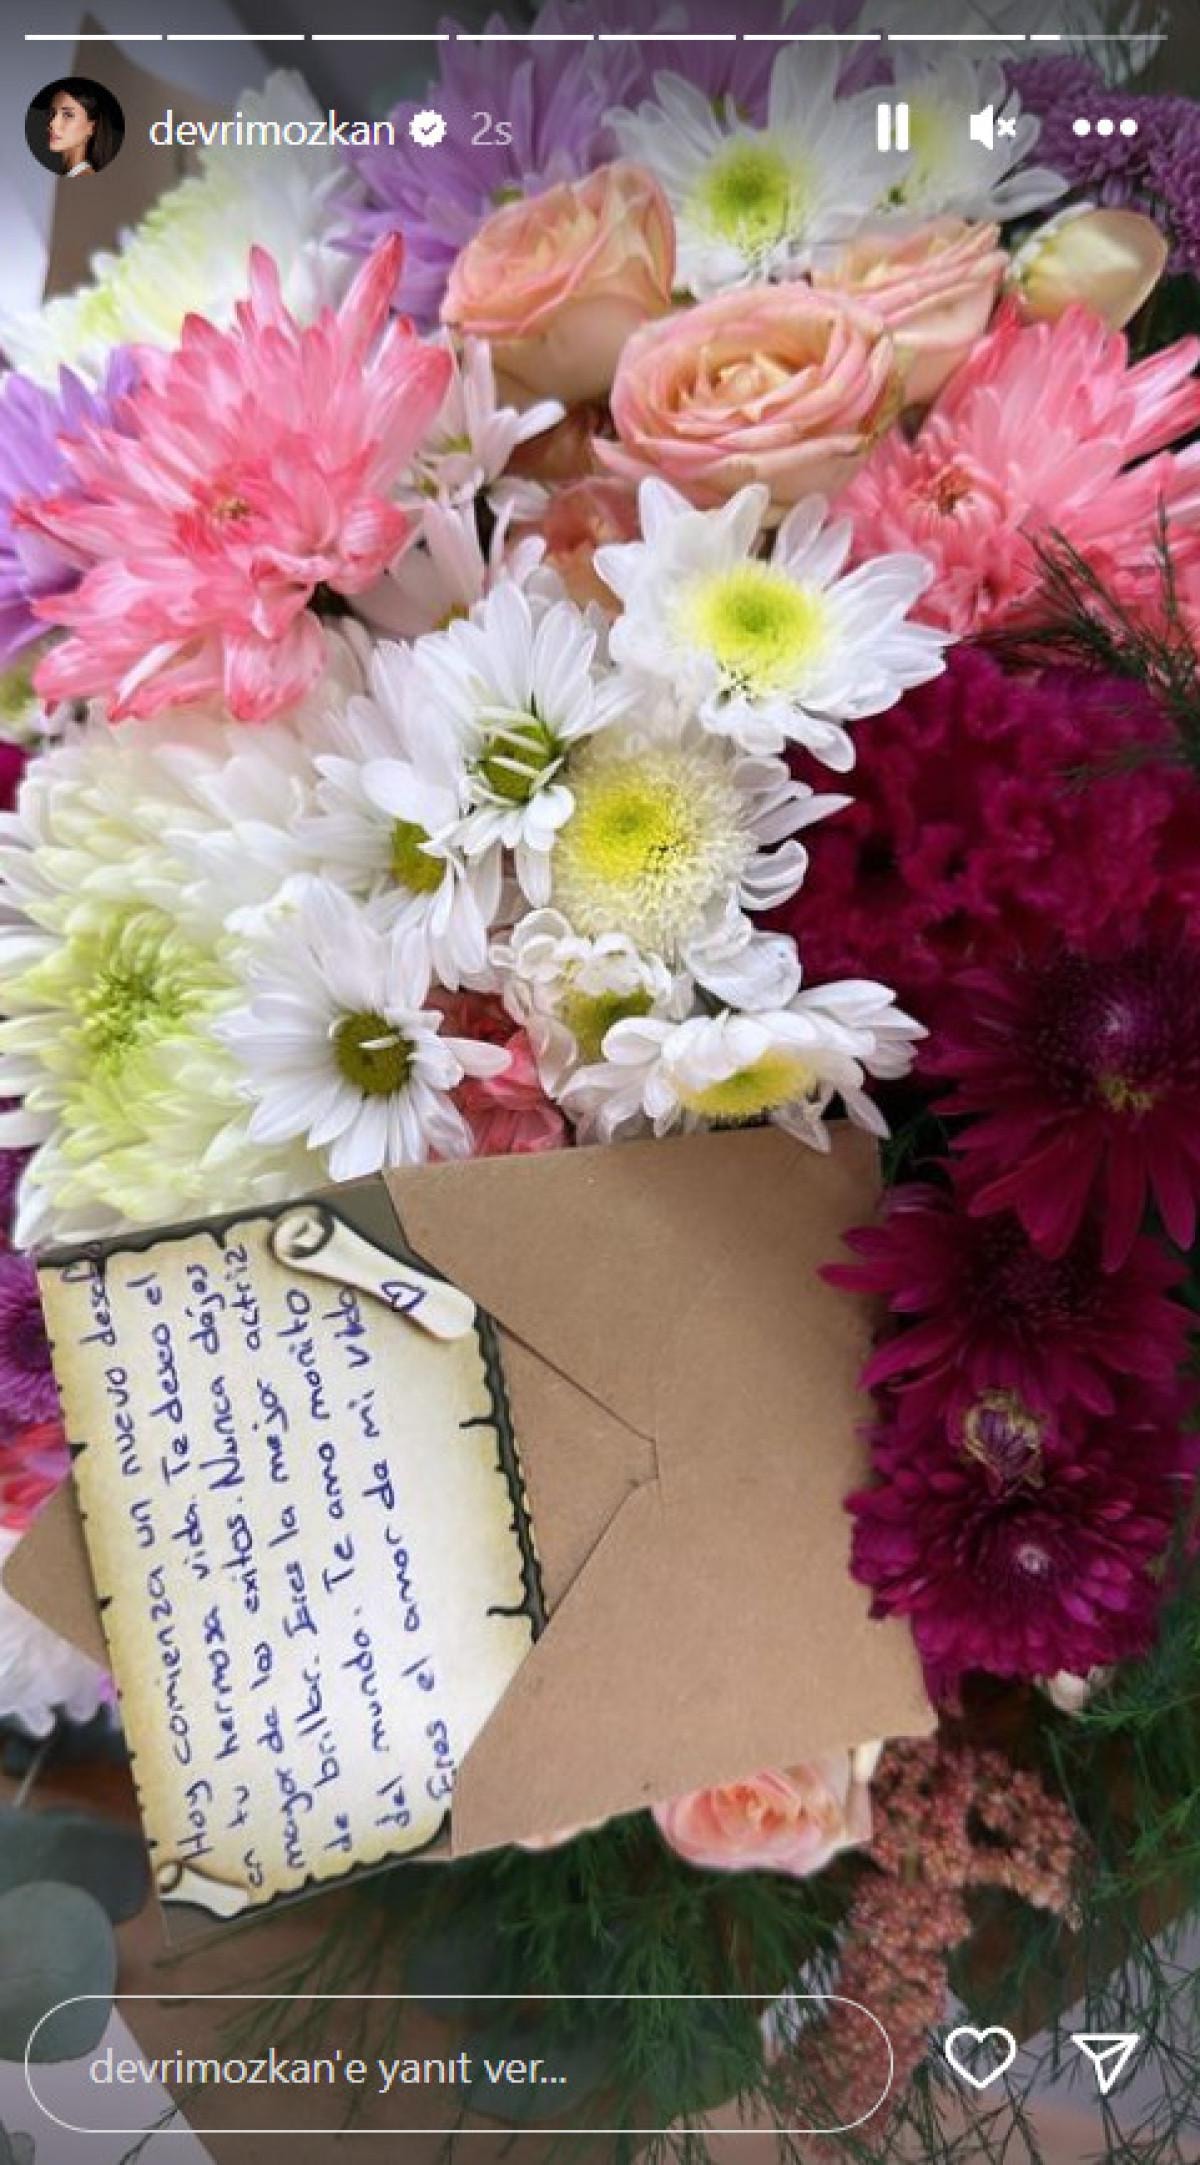 devrimozkan 2s
Hoy comienza un nuevo
en tu hermosa vida. Te deseo el
mayor de los exitos. Nunca dejes
de brillar. Eres la mejor actriz
del mundo. Te amo monito
Eres el amor de mi vida
devrimozkan'e yanıt ver...